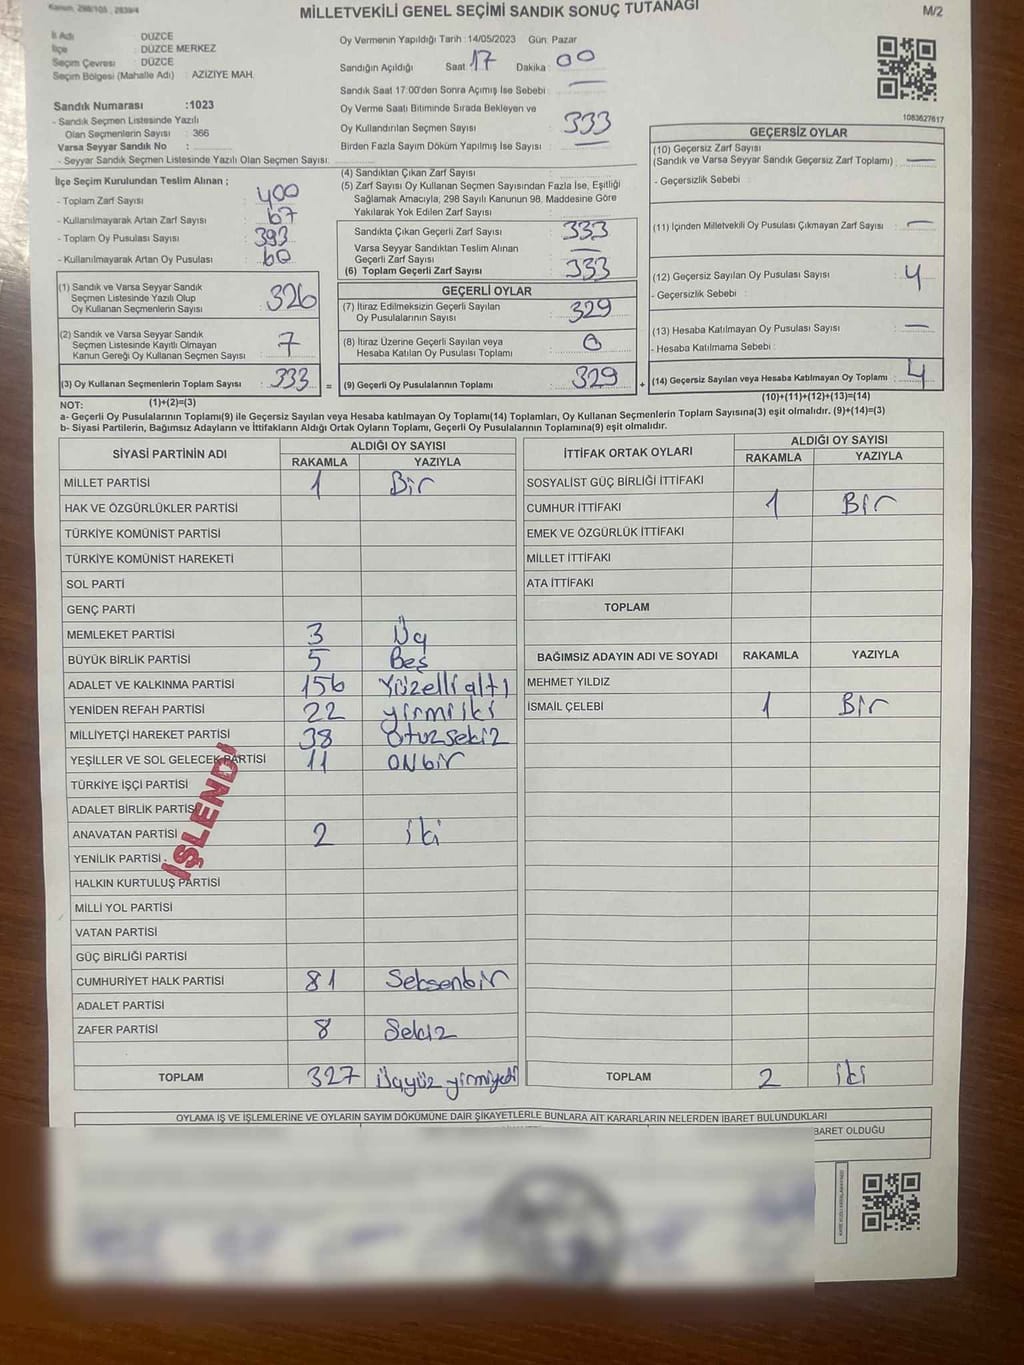 Kanun, 298/105 , 2839/4
MİLLETVEKİLİ GENEL SEÇİMİ SANDIK SONUÇ TUTANAĞI
M/2
İl Adı : DÜZCE
İlçe : DÜZCE MERKEZ
Seçim Çevresi : DÜZCE
Seçim Bölgesi (Mahalle Adı) : AZİZİYE MAH.
Sandık Numarası :1023
- Sandık Seçmen Listesinde Yazılı
Olan Seçmenlerin Sayısı : 366
Varsa Seyyar Sandık No :
- Seyyar Sandık Seçmen Listesinde Yazılı Olan Seçmen Sayısı:
Oy Vermenin Yapıldığı Tarih :14/05/2023 Gün: Pazar
Sandığın Açıldığı Saat :17 Dakika : 00
Sandık Saat 17:00'den Sonra Açımış İse Sebebi : —
Oy Verme Saati Bitiminde Sırada Bekleyen ve
Oy Kullandırılan Seçmen Sayısı : 333
Birden Fazla Sayım Döküm Yapılmış İse Sayısı : —
1083627617
İlçe Seçim Kurulundan Teslim Alınan ;
- Toplam Zarf Sayısı : 400
- Kullanılmayarak Artan Zarf Sayısı : 67
- Toplam Oy Pusulası Sayısı : 393
- Kullanılmayarak Artan Oy Pusulası : 60
(4) Sandıktan Çıkan Zarf Sayısı :
(5) Zarf Sayısı Oy Kullanan Seçmen Sayısından Fazla İse, Eşitliği
Sağlamak Amacıyla, 298 Sayılı Kanunun 98. Maddesine Göre
Yakılarak Yok Edilen Zarf Sayısı :
Sandıkta Çıkan Geçerli Zarf Sayısı : 333
Varsa Seyyar Sandıktan Teslim Alınan
Geçerli Zarf Sayısı : —
(6) Toplam Geçerli Zarf Sayısı : 333
GEÇERSİZ OYLAR
(10) Geçersiz Zarf Sayısı
(Sandık ve Varsa Seyyar Sandık Geçersiz Zarf Toplamı) : —
- Geçersizlik Sebebi :
(11) İçinden Milletvekili Oy Pusulası Çıkmayan Zarf Sayısı : —
(12) Geçersiz Sayılan Oy Pusulası Sayısı : 4
- Geçersizlik Sebebi :
(13) Hesaba Katılmayan Oy Pusulası Sayısı : —
- Hesaba Katılmama Sebebi :
(14) Geçersiz Sayılan veya Hesaba Katılmayan Oy Toplamı : 4
(10)+(11)+(12)+(13)=(14)
(1) Sandık ve Varsa Seyyar Sandık
Seçmen Listesinde Yazılı Olup
Oy Kullanan Seçmenlerin Sayısı : 326
(2) Sandık ve Varsa Seyyar Sandık
Seçmen Listesinde Kayıtlı Olmayan
Kanun Gereği Oy Kullanan Seçmen Sayısı : 7
(3) Oy Kullanan Seçmenlerin Toplam Sayısı : 333 =
(1)+(2)=(3)
GEÇERLİ OYLAR
(7) İtiraz Edilmeksizin Geçerli Sayılan
Oy Pusulalarının Sayısı : 329
(8) İtiraz Üzerine Geçerli Sayılan veya
Hesaba Katılan Oy Pusulası Toplamı : 0
(9) Geçerli Oy Pusulalarının Toplamı : 329 +
NOT:
a- Geçerli Oy Pusulalarının Toplamı(9) ile Geçersiz Sayılan veya Hesaba katılmayan Oy Toplamı(14) Toplamları, Oy Kullanan Seçmenlerin Toplam Sayısına(3) eşit olmalıdır. (9)+(14)=(3)
b- Siyasi Partilerin, Bağımsız Adayların ve İttifakların Aldığı Ortak Oyların Toplamı, Geçerli Oy Pusulalarının Toplamına(9) eşit olmalıdır.
SİYASİ PARTİNİN ADI ALDIĞI OY SAYISI
RAKAMLA YAZIYLA
MİLLET PARTİSİ 1 Bir
HAK VE ÖZGÜRLÜKLER PARTİSİ
TÜRKİYE KOMÜNİST PARTİSİ
TÜRKİYE KOMÜNİST HAREKETİ
SOL PARTİ
GENÇ PARTİ
MEMLEKET PARTİSİ 3 Üç
BÜYÜK BİRLİK PARTİSİ 5 Beş
ADALET VE KALKINMA PARTİSİ 156 Yüzelli altı
YENİDEN REFAH PARTİSİ 22 yirmi iki
MİLLİYETÇİ HAREKET PARTİSİ 38 Otuzsekiz
YEŞİLLER VE SOL GELECEK PARTİSİ 11 ONbir
TÜRKİYE İŞÇİ PARTİSİ
ADALET BİRLİK PARTİSİ
ANAVATAN PARTİSİ 2 iki
YENİLİK PARTİSİ
HALKIN KURTULUŞ PARTİSİ
MİLLİ YOL PARTİSİ
VATAN PARTİSİ
GÜÇ BİRLİĞİ PARTİSİ
CUMHURİYET HALK PARTİSİ 81 Seksenbir
ADALET PARTİSİ
ZAFER PARTİSİ 8 Sekiz
TOPLAM 327 Üçyüz yirmiyedi
İŞLENDİ
İTTİFAK ORTAK OYLARI ALDIĞI OY SAYISI
RAKAMLA YAZIYLA
SOSYALİST GÜÇ BİRLİĞİ İTTİFAKI
CUMHUR İTTİFAKI 1 Bir
EMEK VE ÖZGÜRLÜK İTTİFAKI
MİLLET İTTİFAKI
ATA İTTİFAKI
TOPLAM
BAĞIMSIZ ADAYIN ADI VE SOYADI RAKAMLA YAZIYLA
MEHMET YILDIZ
İSMAİL ÇELEBİ 1 Bir
TOPLAM 2 iki
OYLAMA İŞ VE İŞLEMLERİNE VE OYLARIN SAYIM DÖKÜMÜNE DAİR ŞİKAYETLERLE BUNLARA AİT KARARLARIN NELERDEN İBARET BULUNDUKLARI
BARET OLDUĞU